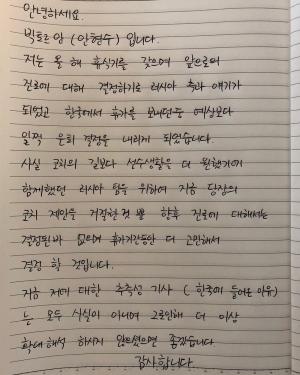 안녕하세요.
빅토르 안 (안현수) 입니다.
저는 올 해 휴식기를 갖으며 앞으로의
진로에 대해 결정하기로 러시아 측과 얘기가
되었고 한국에서 휴가를 보내던중 예상보다
일찍 은퇴 결정을 내리게 되었습니다.
사실 코치의 길보다 선수생활을 더 원했기에
함께했던 러시아 팀을 위하여 지금 당장의
코치 제안을 거절한것 뿐 향후 진로에 대해서는
결정된바 없으며 휴가기간동안 더 고민해서
결정 할 것입니다.
지금 저에 대한 추측성 기사 ( 한국에 들어온 이유)
는 모두 사실이 아니며 그로인해 더 이상
확대해석 하시지 않으셨으면 좋겠습니다
감사합니다.